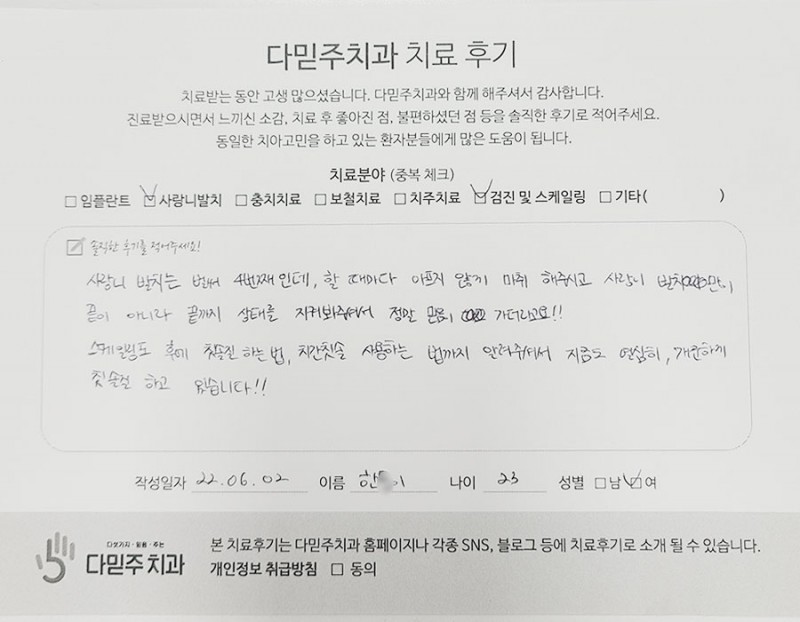 다믿주치과 치료 후기
치료받는 동안 고생 많으셨습니다. 다믿주치과와 함께 해주셔서 감사합니다.
진료받으시면서 느끼신 소감, 치료 후 좋아진 점, 불편하셨던 점 등을 솔직한 후기로 적어주세요.
동일한 치아고민을 하고 있는 환자분들에게 많은 도움이 됩니다.
치료분야 (중복 체크)
임플란트 사랑니발치 충치치료 보철치료 치주치료 검진 및 스케일링 기타( )
솔직한 후기를 적어주세요!
사랑니 발치는 벌써 4번째인데, 할 때마다 아프지 않게 마취 해주시고 사랑니 발치만이
끝이 아니라 끝까지 상태를 지켜봐주셔서 정말 믿음이 가더라고요!!
스케일링도 후에 칫솔질 하는 법, 치간칫솔 사용하는 법까지 알려주셔서 지금도 열심히, 개운하게
칫솔질 하고 있습니다!!
작성일자 22.06.02 이름 한 이 나이 23 성별 남 여
다섯가지·믿음·주는
다믿주치과
본 치료후기는 다믿주치과 홈페이지나 각종 SNS, 블로그 등에 치료후기로 소개 될 수 있습니다.
개인정보 취급방침 동의